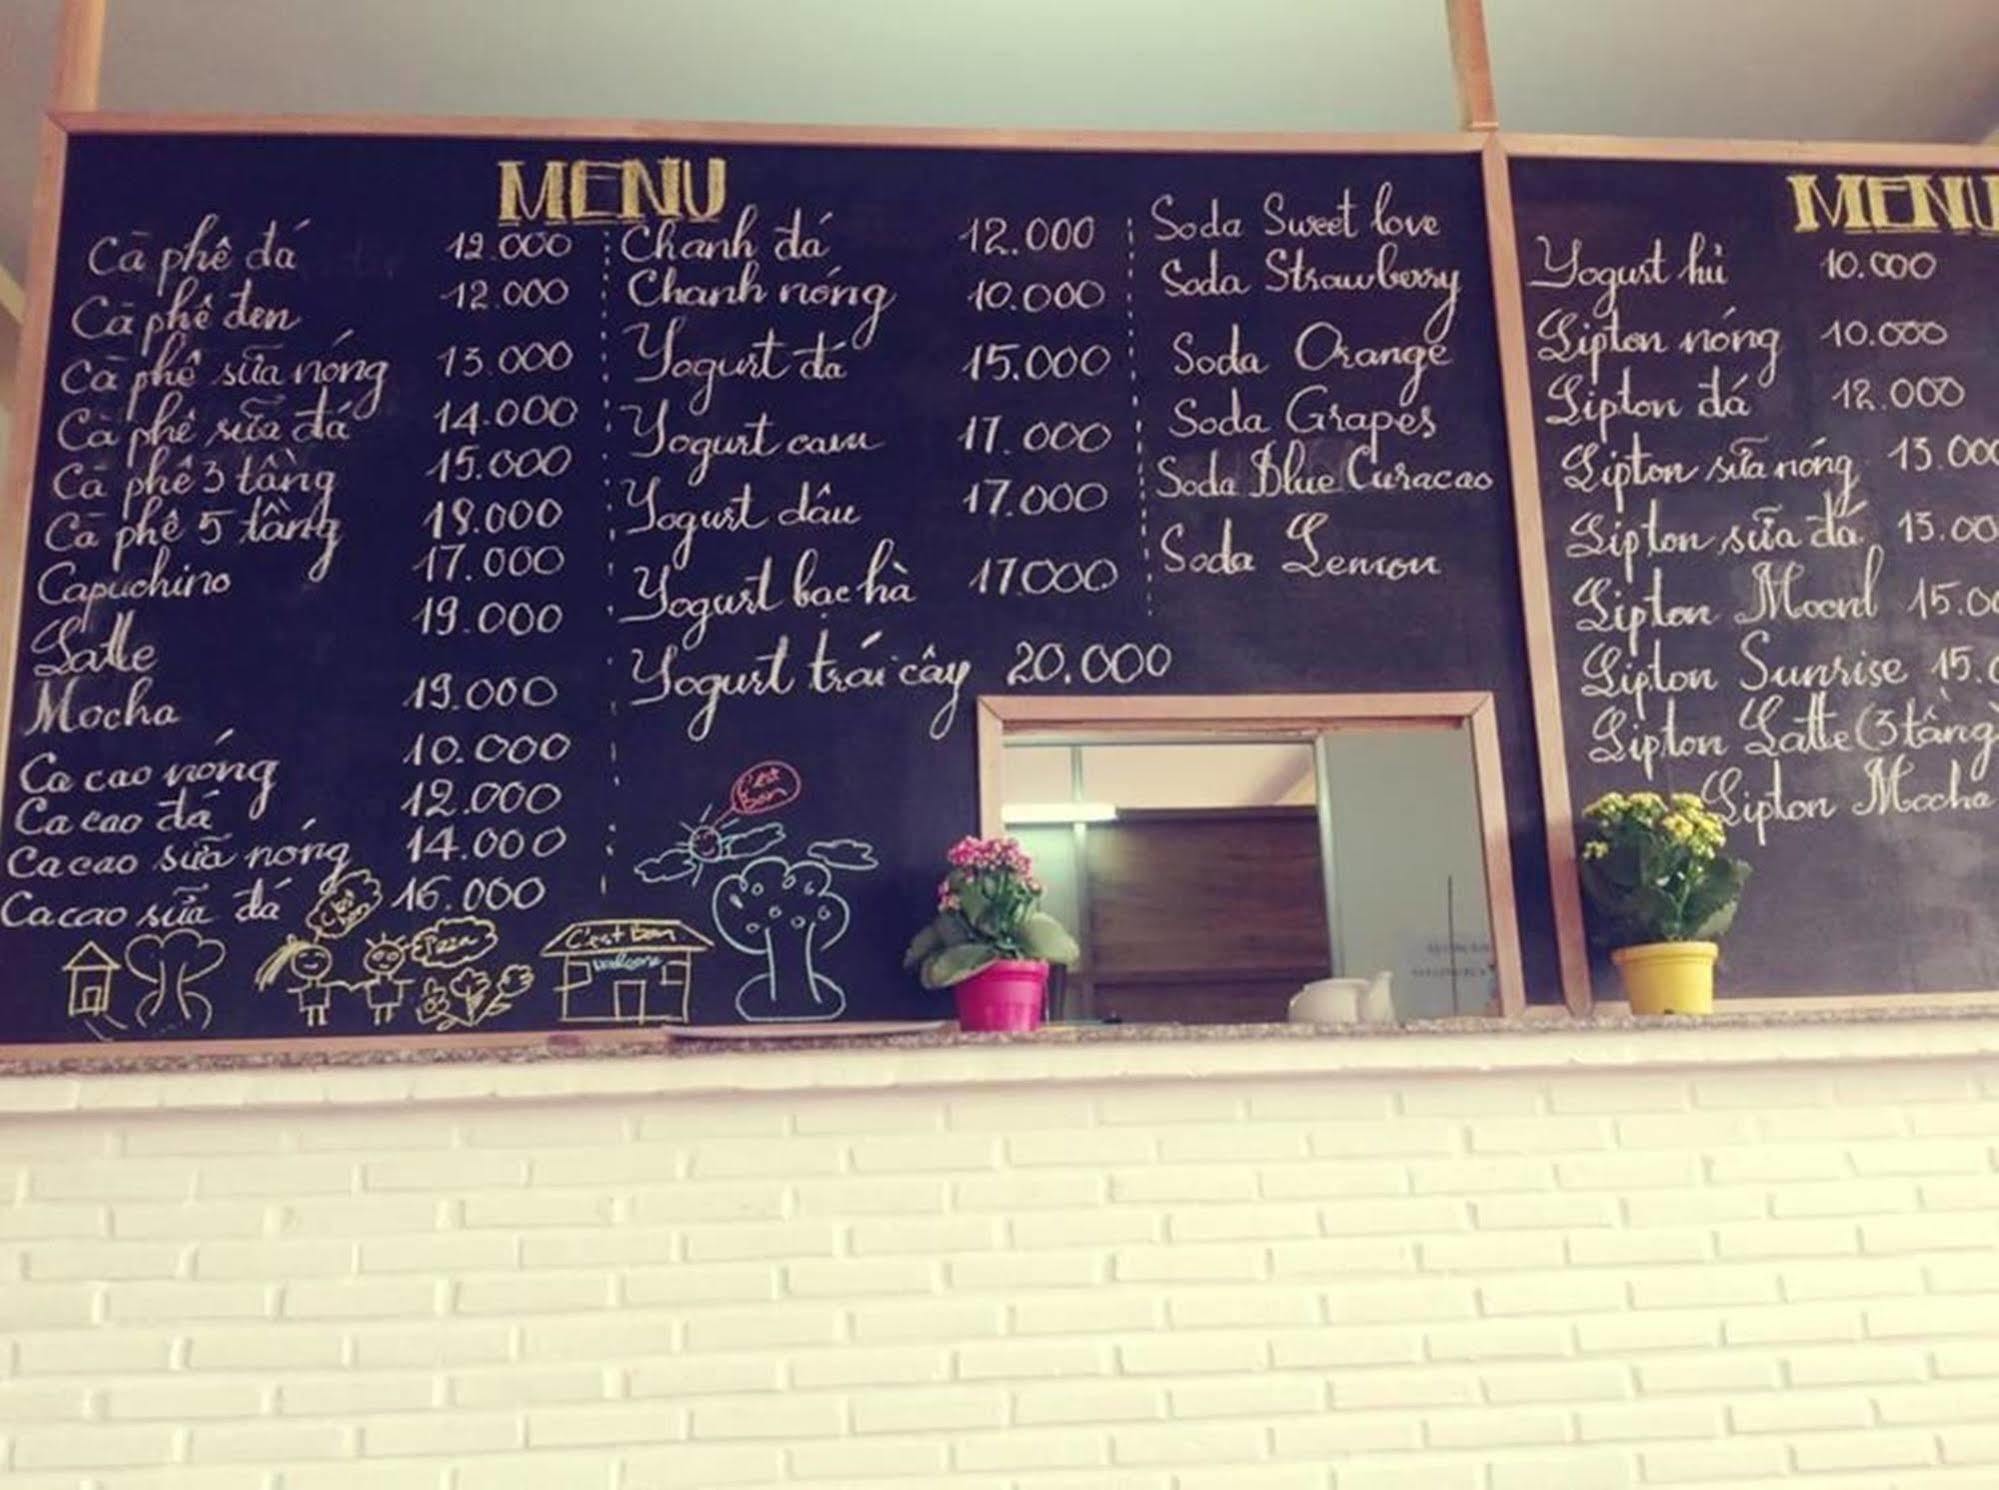 MENU
Cà phê đá 12.000
Cà phê đen 12.000
Cà phê sữa nóng 13.000
Cà phê sữa đá 14.000
Cà phê 3 tầng 15.000
Cà phê 5 tầng 18.000
Capuchino 17.000
Latte 19.000
Mocha 19.000
Ca cao nóng 10.000
Ca cao đá 12.000
Ca cao sữa nóng 14.000
Ca cao sữa đá 16.000
Chanh đá 12.000
Chanh nóng 10.000
Yogurt đá 15.000
Yogurt cam 17.000
Yogurt dâu 17.000
Yogurt bạc hà 17.000
Yogurt trái cây 20.000
Soda Sweet love
Soda Strawberry
Soda Orange
Soda Grapes
Soda Blue Curacao
Soda Lemon
C'est
Bon
C'est
bon
Pizza
C'est bon
welcome
MENU
Yogurt hủ 10.000
Lipton nóng 10.000
Lipton đá 12.000
Lipton sữa nóng 13.000
Lipton sữa đá 15.00
Lipton 15.00
Lipton Sunrise 15.0
Lipton Latte (3 tầng)
Lipton Mocha